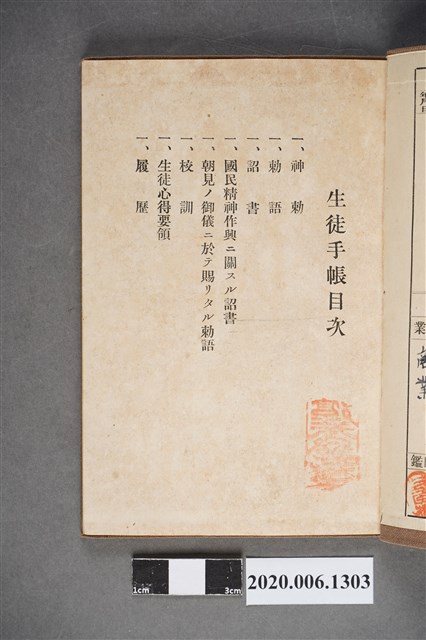 生徒手帳目次
一、神勅
一、勅語
一、詔書
一、國民精神作興ニ關スル詔書
一、朝見ノ御儀ニ於テ賜リタル勅語
一、校訓
一、生徒心得要領
一、履歷
業
鑑
1cm
3cm
2020.006.1303